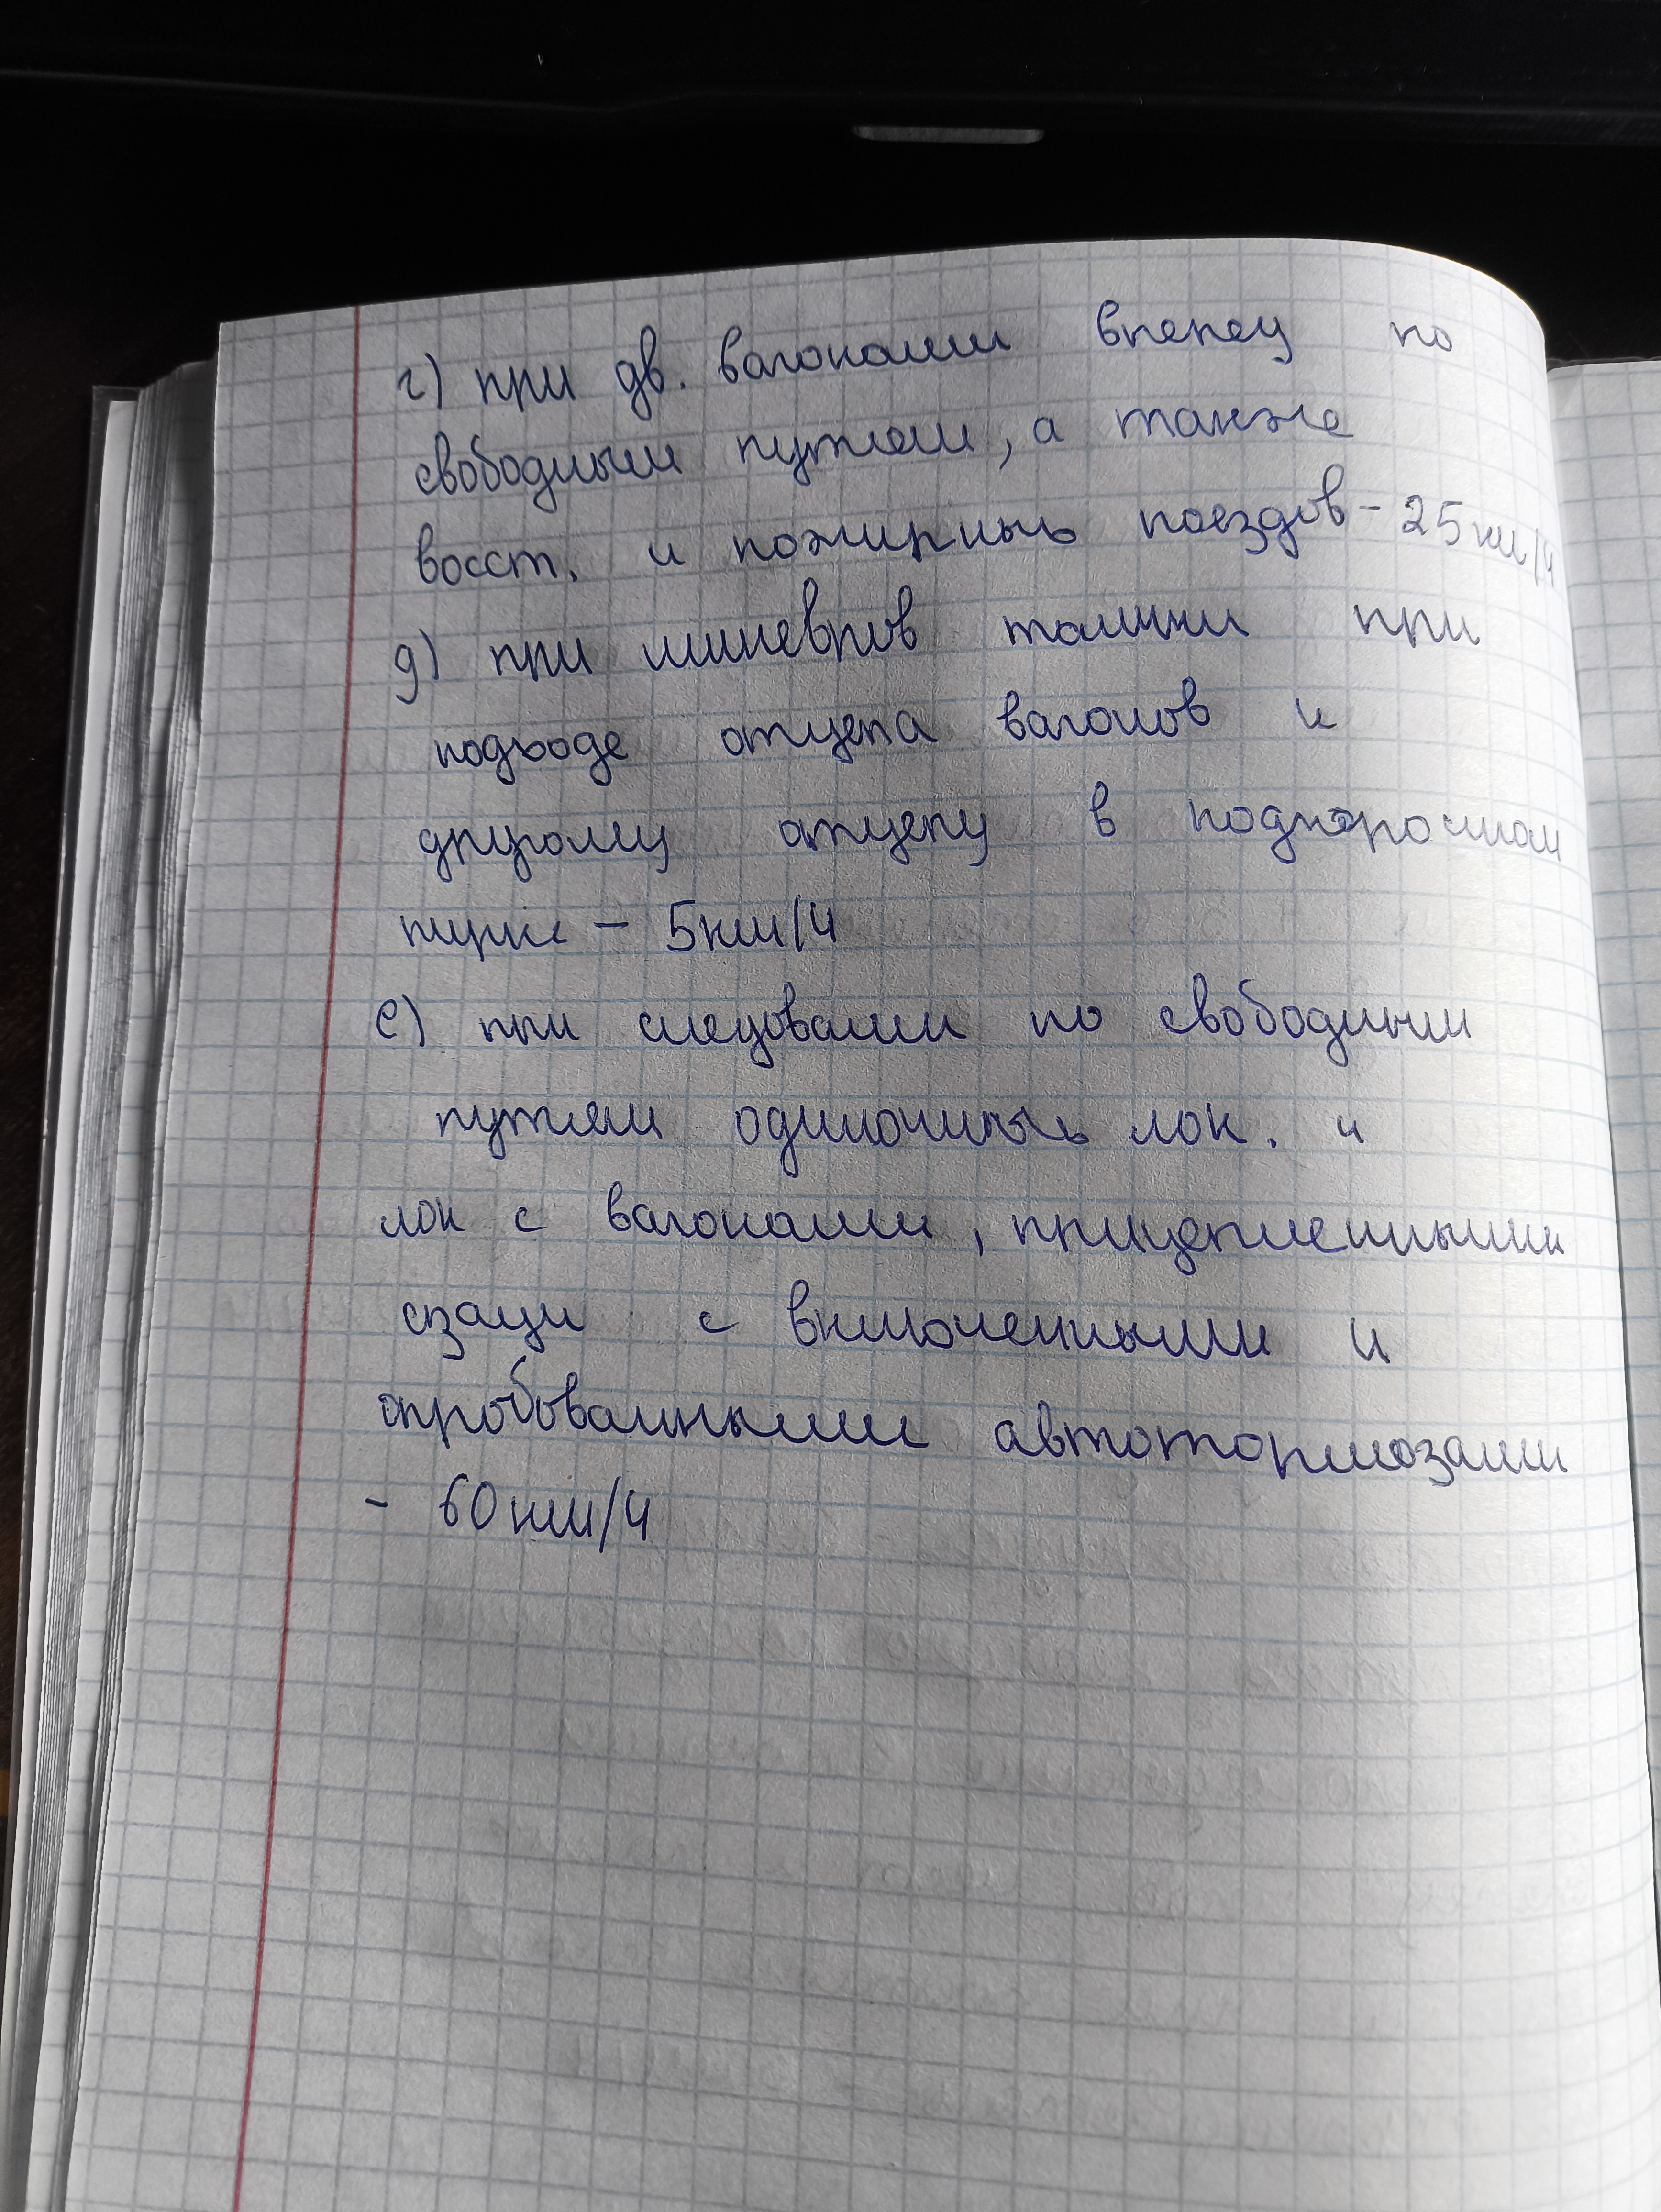 г) при дв. вагонами вперед по
свободным путям, а также
восст. и пожарных поездов - 25 км/ч
д) при маневров толчки при
подходе отцепа вагонов к
другому отцепу в подгорочном
парке - 5 км/ч
е) при следовании по свободным
путям одиночных лок. и
лок с вагонами, прицепленными
сзади с включенными и
опробованными автотормозами
- 60 км/ч